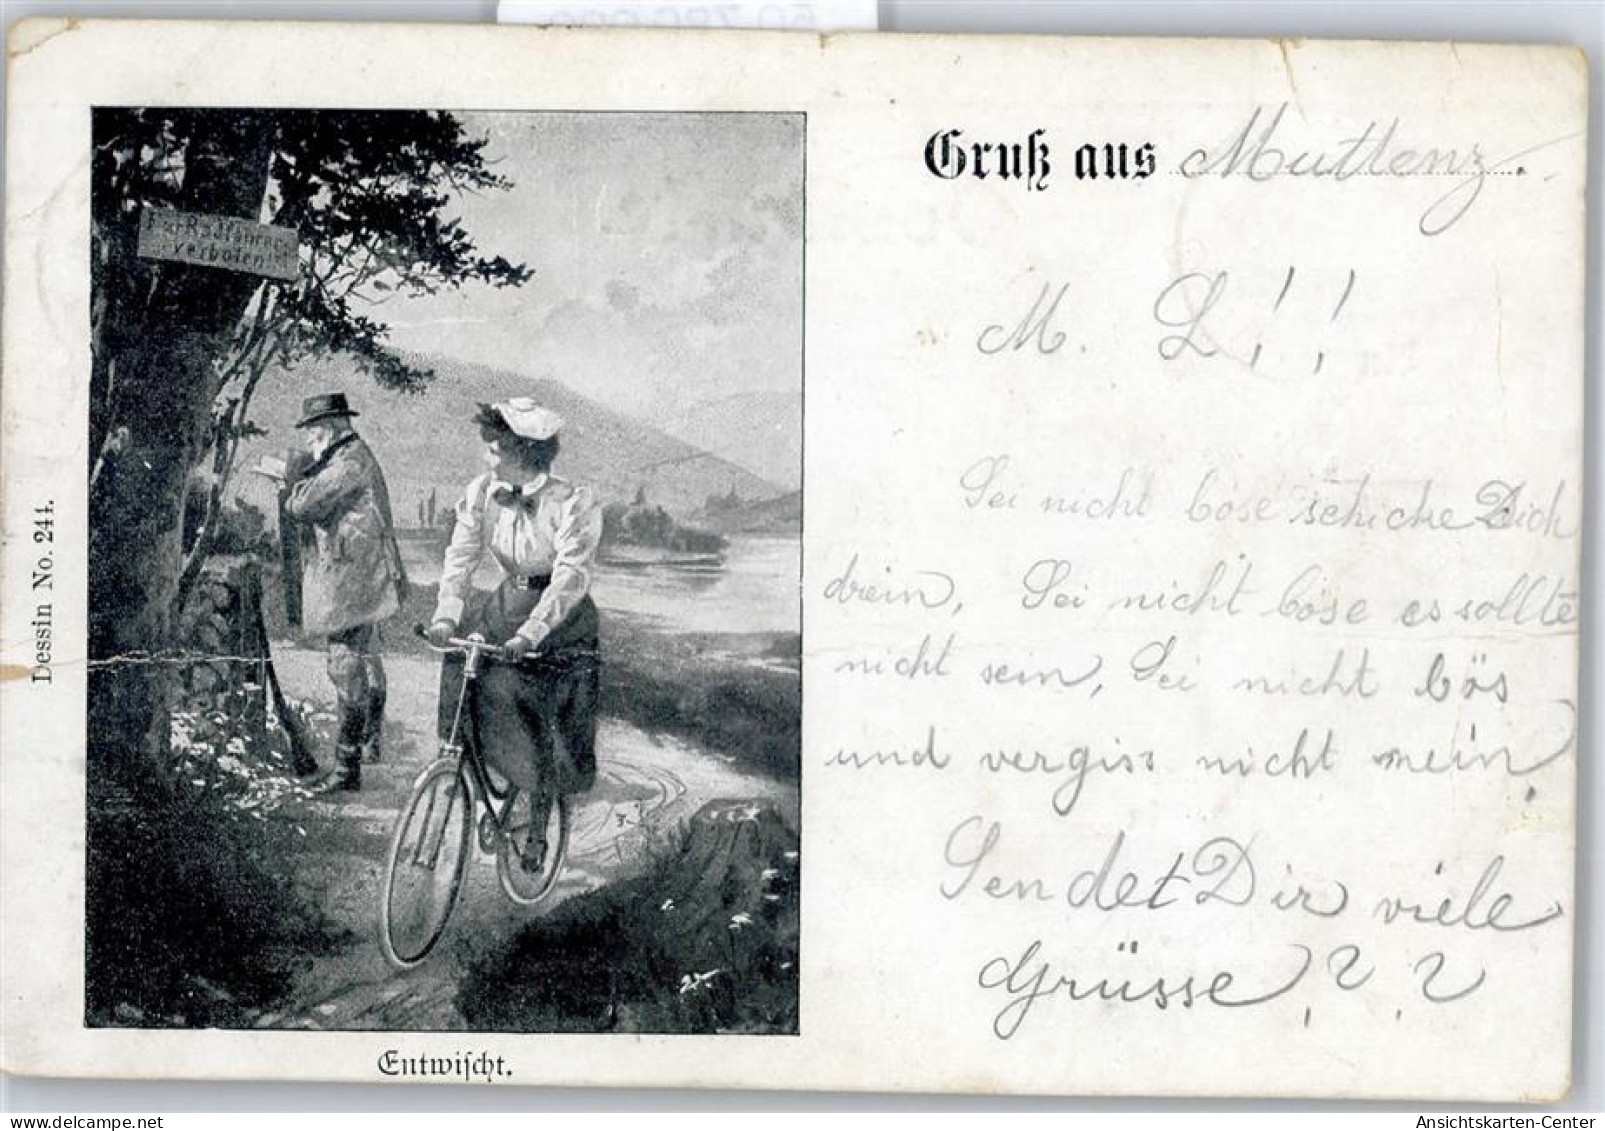 Gruß aus Muttenz.
M. L!!
Sei nicht böse schicke Dich
drein, Sei nicht böse es sollte
nicht sein, Sei nicht bös
und vergiss nicht mein,
Sendet Dir viele
Grüsse???
Für Radfahrer
verboten!
Dessin No. 244.
Entwischt.
Ansichtskarten-Center